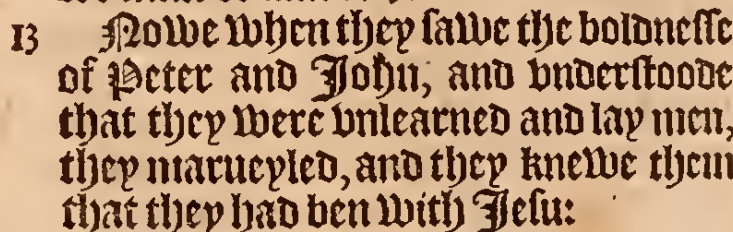 13 Nowe when they sawe the boldnesse
of Peter and John, and vnderstoode
that they were vnlearned and lay men,
they marueyled, and they knewe them
that they had ben with Jesu: